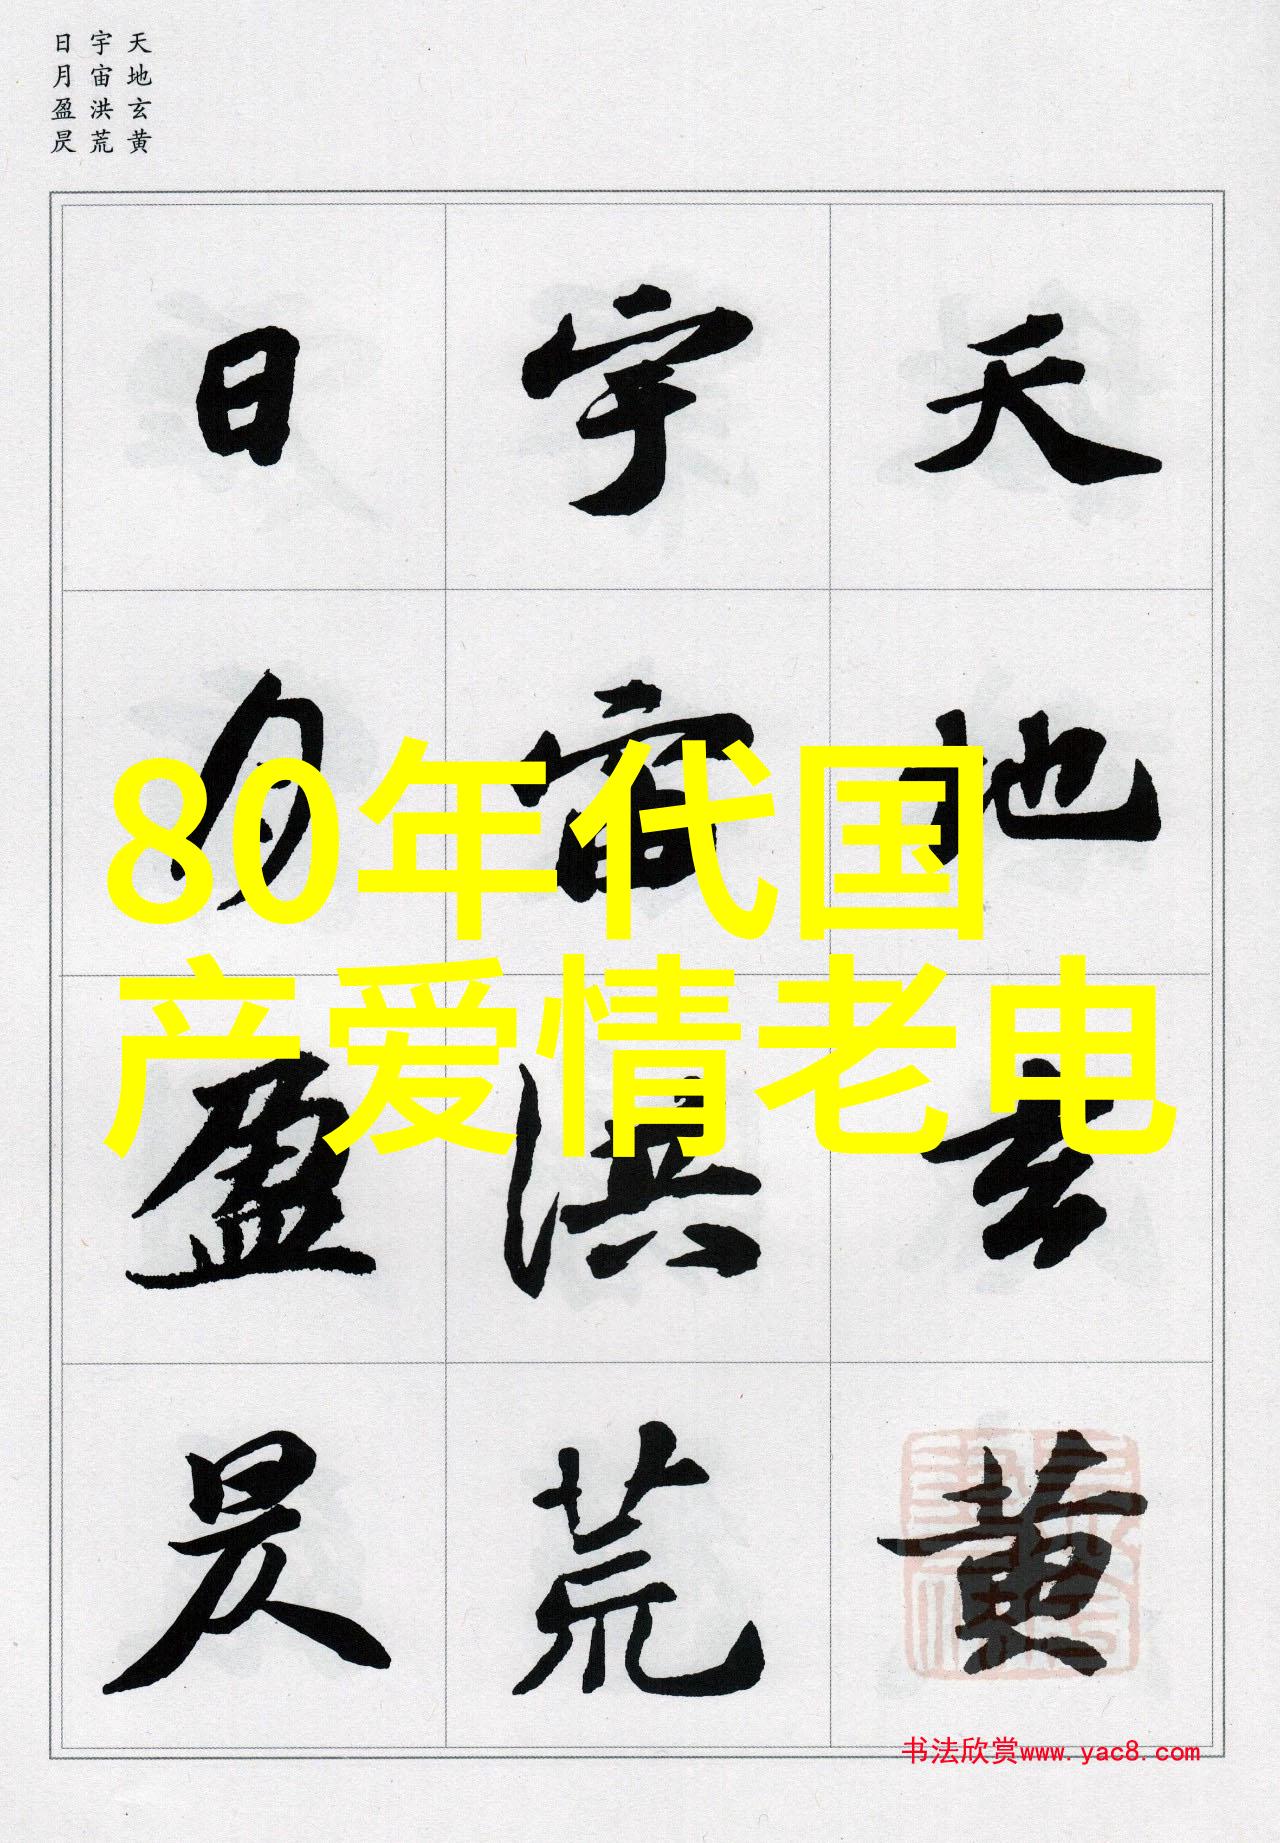 天地玄黄
宇宙洪荒
日月盈昃
天地玄黄
宇宙洪荒
日月盈昃
80年代国
产爱情老电
书法欣赏www.yac8.com